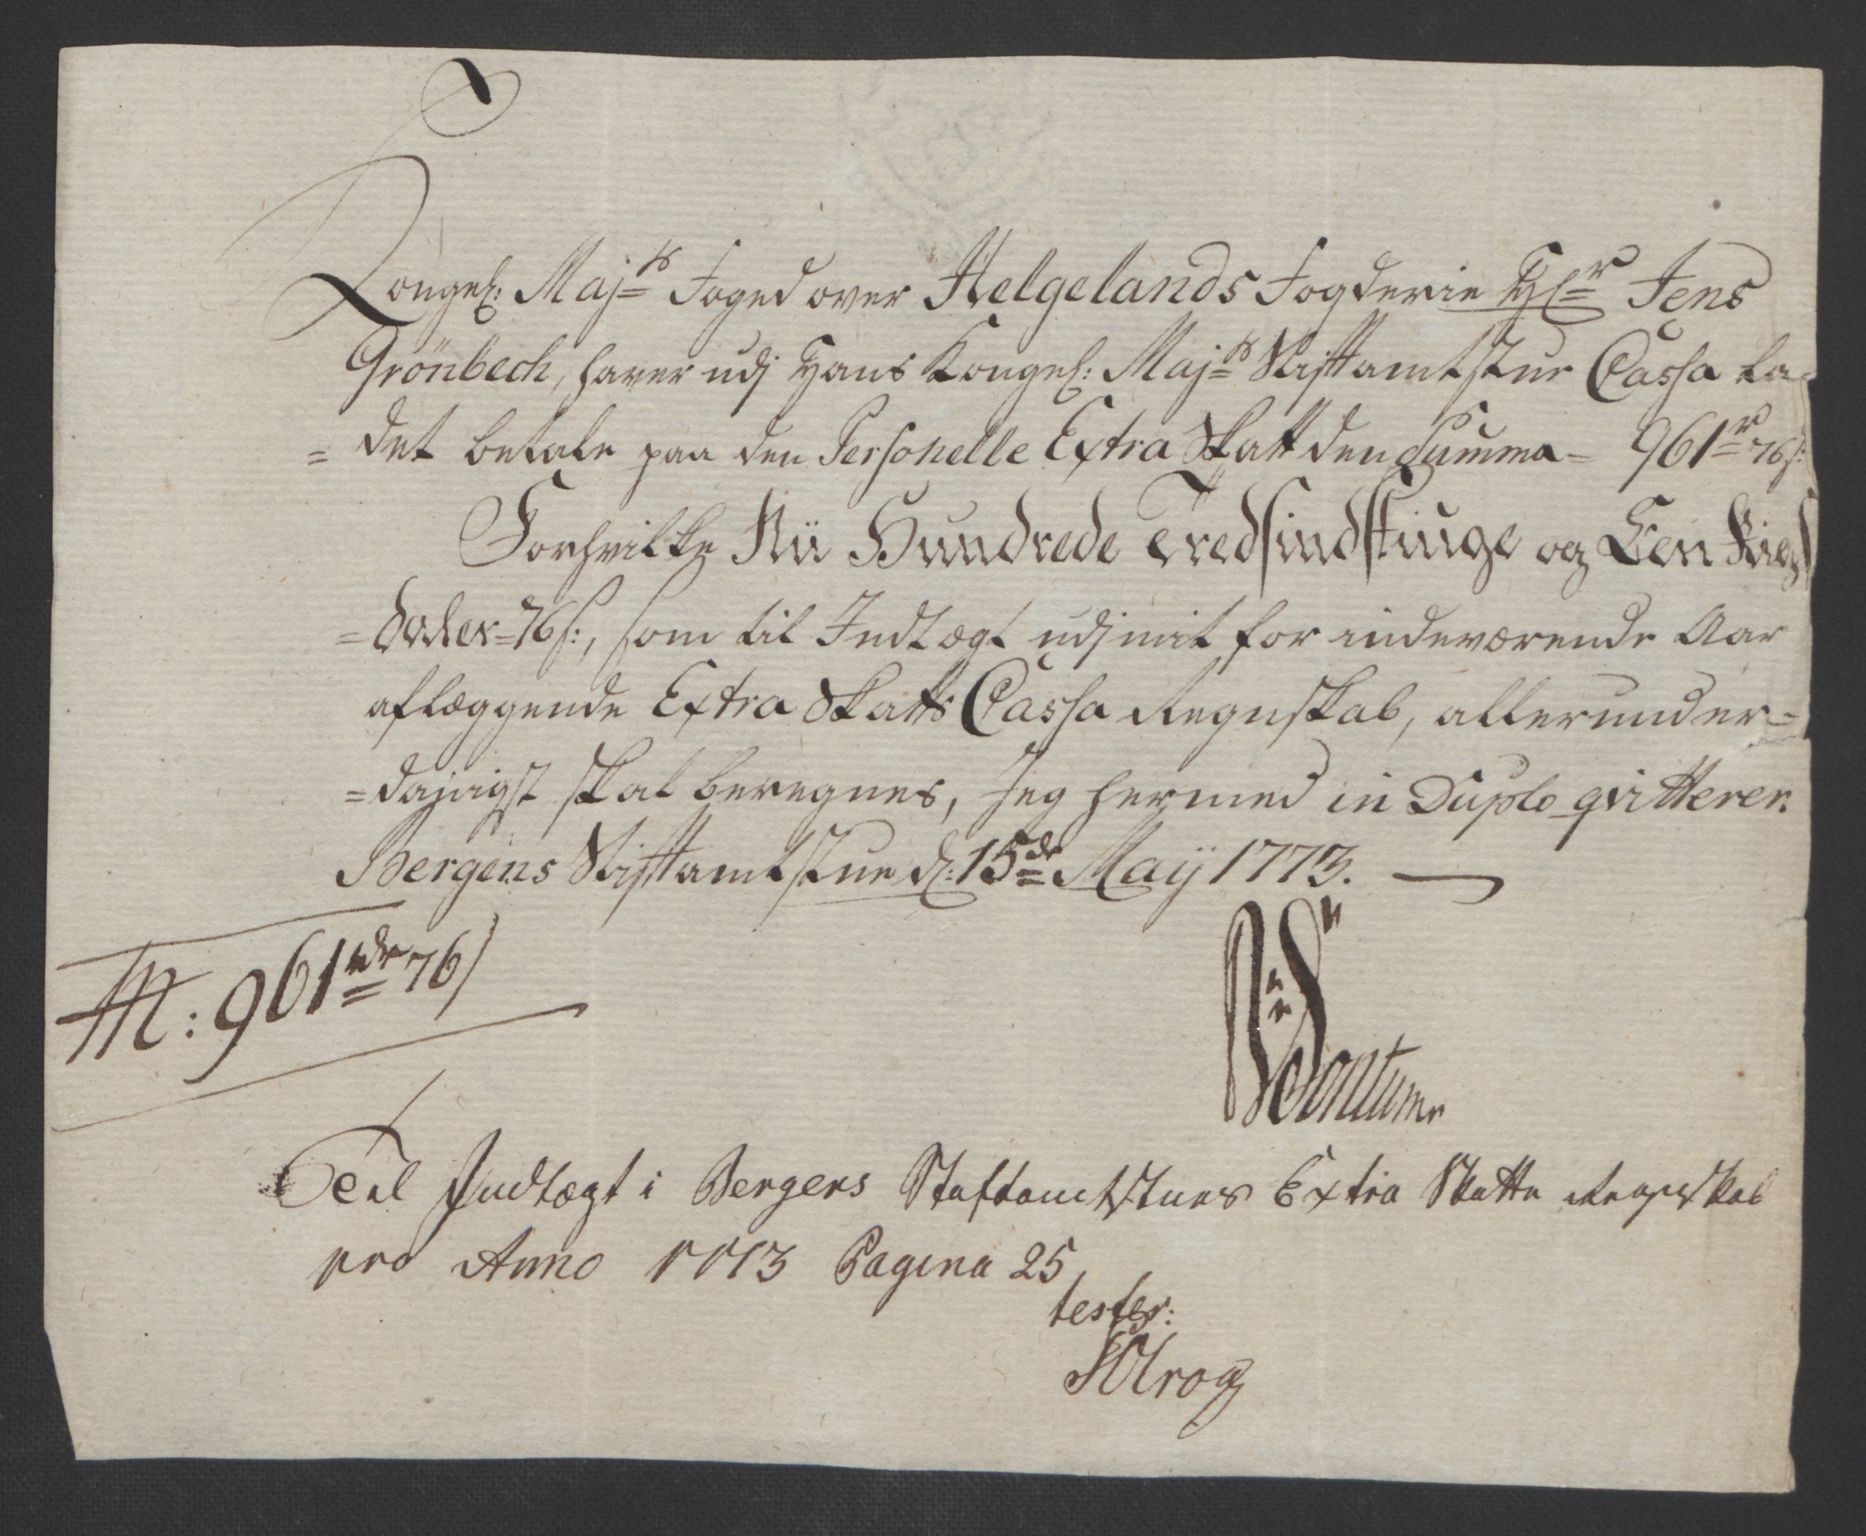 Kongel: Maj:ts Foged over Helgelands Fogderie Hr Jens
Grönbech, haver udj Hans Kongel: Maj:ts Stiftamtstue Cassa La-
=det betale paa den Personelle Extra Skatt den Summa - 961r 76s:
Forhvilke Nii Hundrede Tredsindstiuge og Een Rigs
=daler 76s:, som til Indtægt udj mit for indeværende Aar
aflæggende Extra Skatts Cassa Regnskab, allerunder-
=danigst skal beregnes, Jeg hermed in Duplo qvitterer.
Bergens Stiftamtstue d: 15de Maij 1773.
961rdr 76s
Til Indtægt i Bergens Stiftamtstues Extra Skatte Regnskab
pro Anno 1773 Pagina 25
tester:
Krog